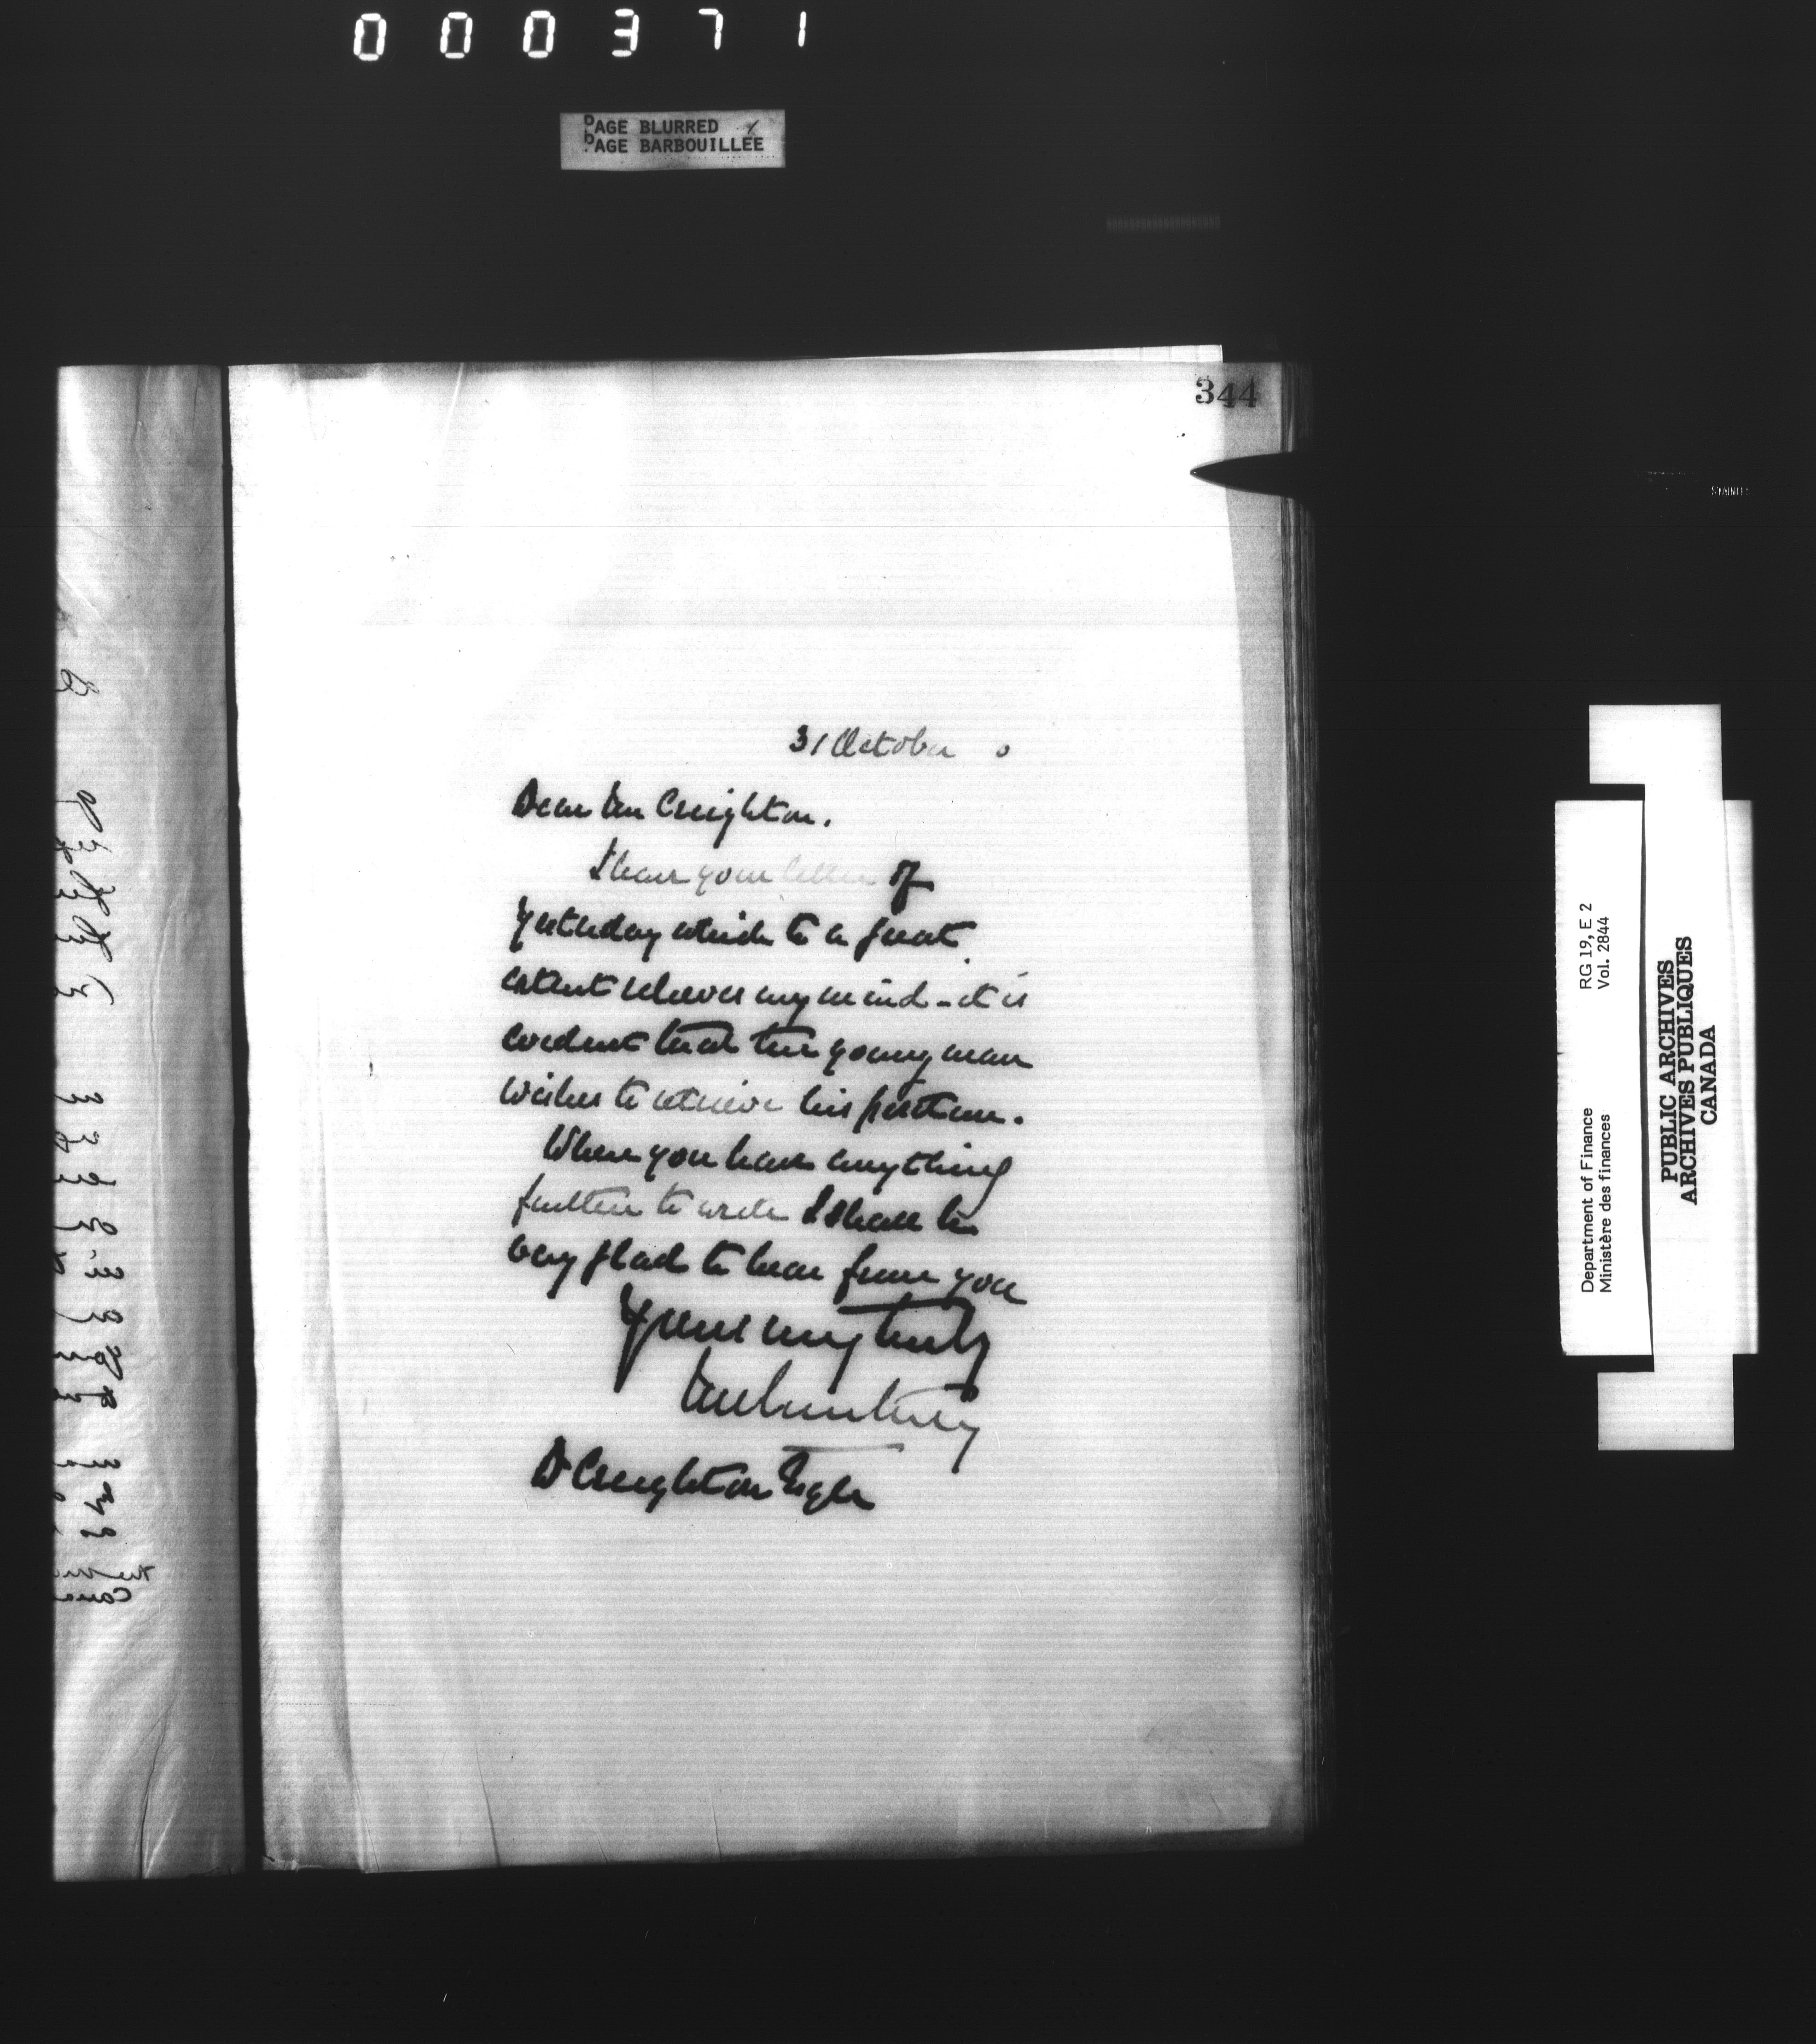 000371
PAGE BLURRED
PAGE BARBOUILLÉE
344
31 October 0
Dear Mr Creighton.
I have your letter of
yesterday which to a great
extent relieves my mind - it is
evident that the young man
wishes to retrieve his position.
When you have anything
further to write I shall be
very glad to hear from you
Yours very truly
D Creighton Esqre
Department of Finance
Ministère des finances
RG 19, E 2
Vol. 2844
PUBLIC ARCHIVES
ARCHIVES PUBLIQUES
CANADA